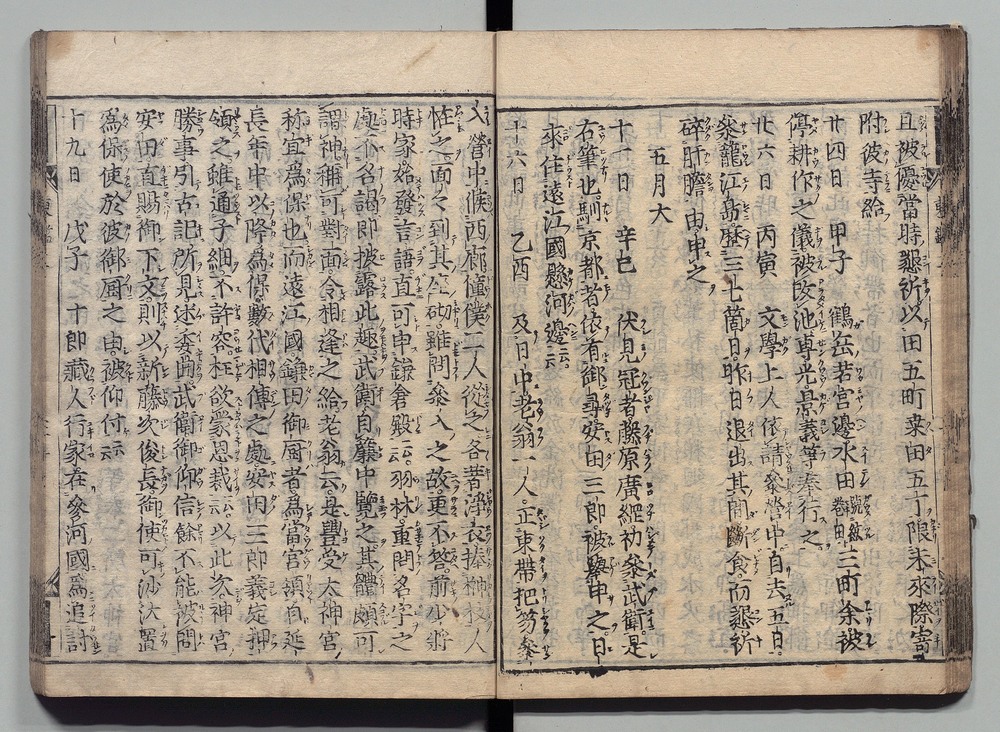 且被優當時懇祈以田五町桒田五丁限未來際寄
附彼寺給
廿四日 甲子 鶴岳若宮邊水田号絃巻田三町余被
停耕作之儀被改池專光景義等奉行之
廿六日 丙寅 文學上人依請參營中自去五日
參籠江島歴三七箇日昨日退出其間斷食而懇祈
碎肝膽由申之
五月大
十一日 辛巳 伏見冠者藤原廣綱初參武衛是
右筆也馴京都者依有御尋安田三郎被擧申之日
來住遠江國懸河邊云云
十六日 乙酉 及日中老翁一人正束帶把笏參
入營中候西廊僮僕二人從之各著淨衣捧榊枝人
恠之面々到其座砌雖問參入之故更不答前少將
時家始發言語直可申鎌倉殿云云羽林重問名字之
處不名謁即披露此趣武衛自簾中覽之其體頗可
謂神稱可對面令相逢之給老翁云是豐受太神宮
祢宜爲保也而遠江國鎌田御厨者爲當宮領自延
長年中以降爲保數代相傳之處安田三郎義定押
領之雖通子細不許容枉欲蒙恩裁云云以此次神宮
勝事引古記所見述委曲武衛御仰信餘不能被問
安田直賜御下文則以新藤次俊長爲御使可沙汰置
爲保使於彼御厨之由被仰付云云
十九日 戊子 十郎藏人行家在參河國爲追討